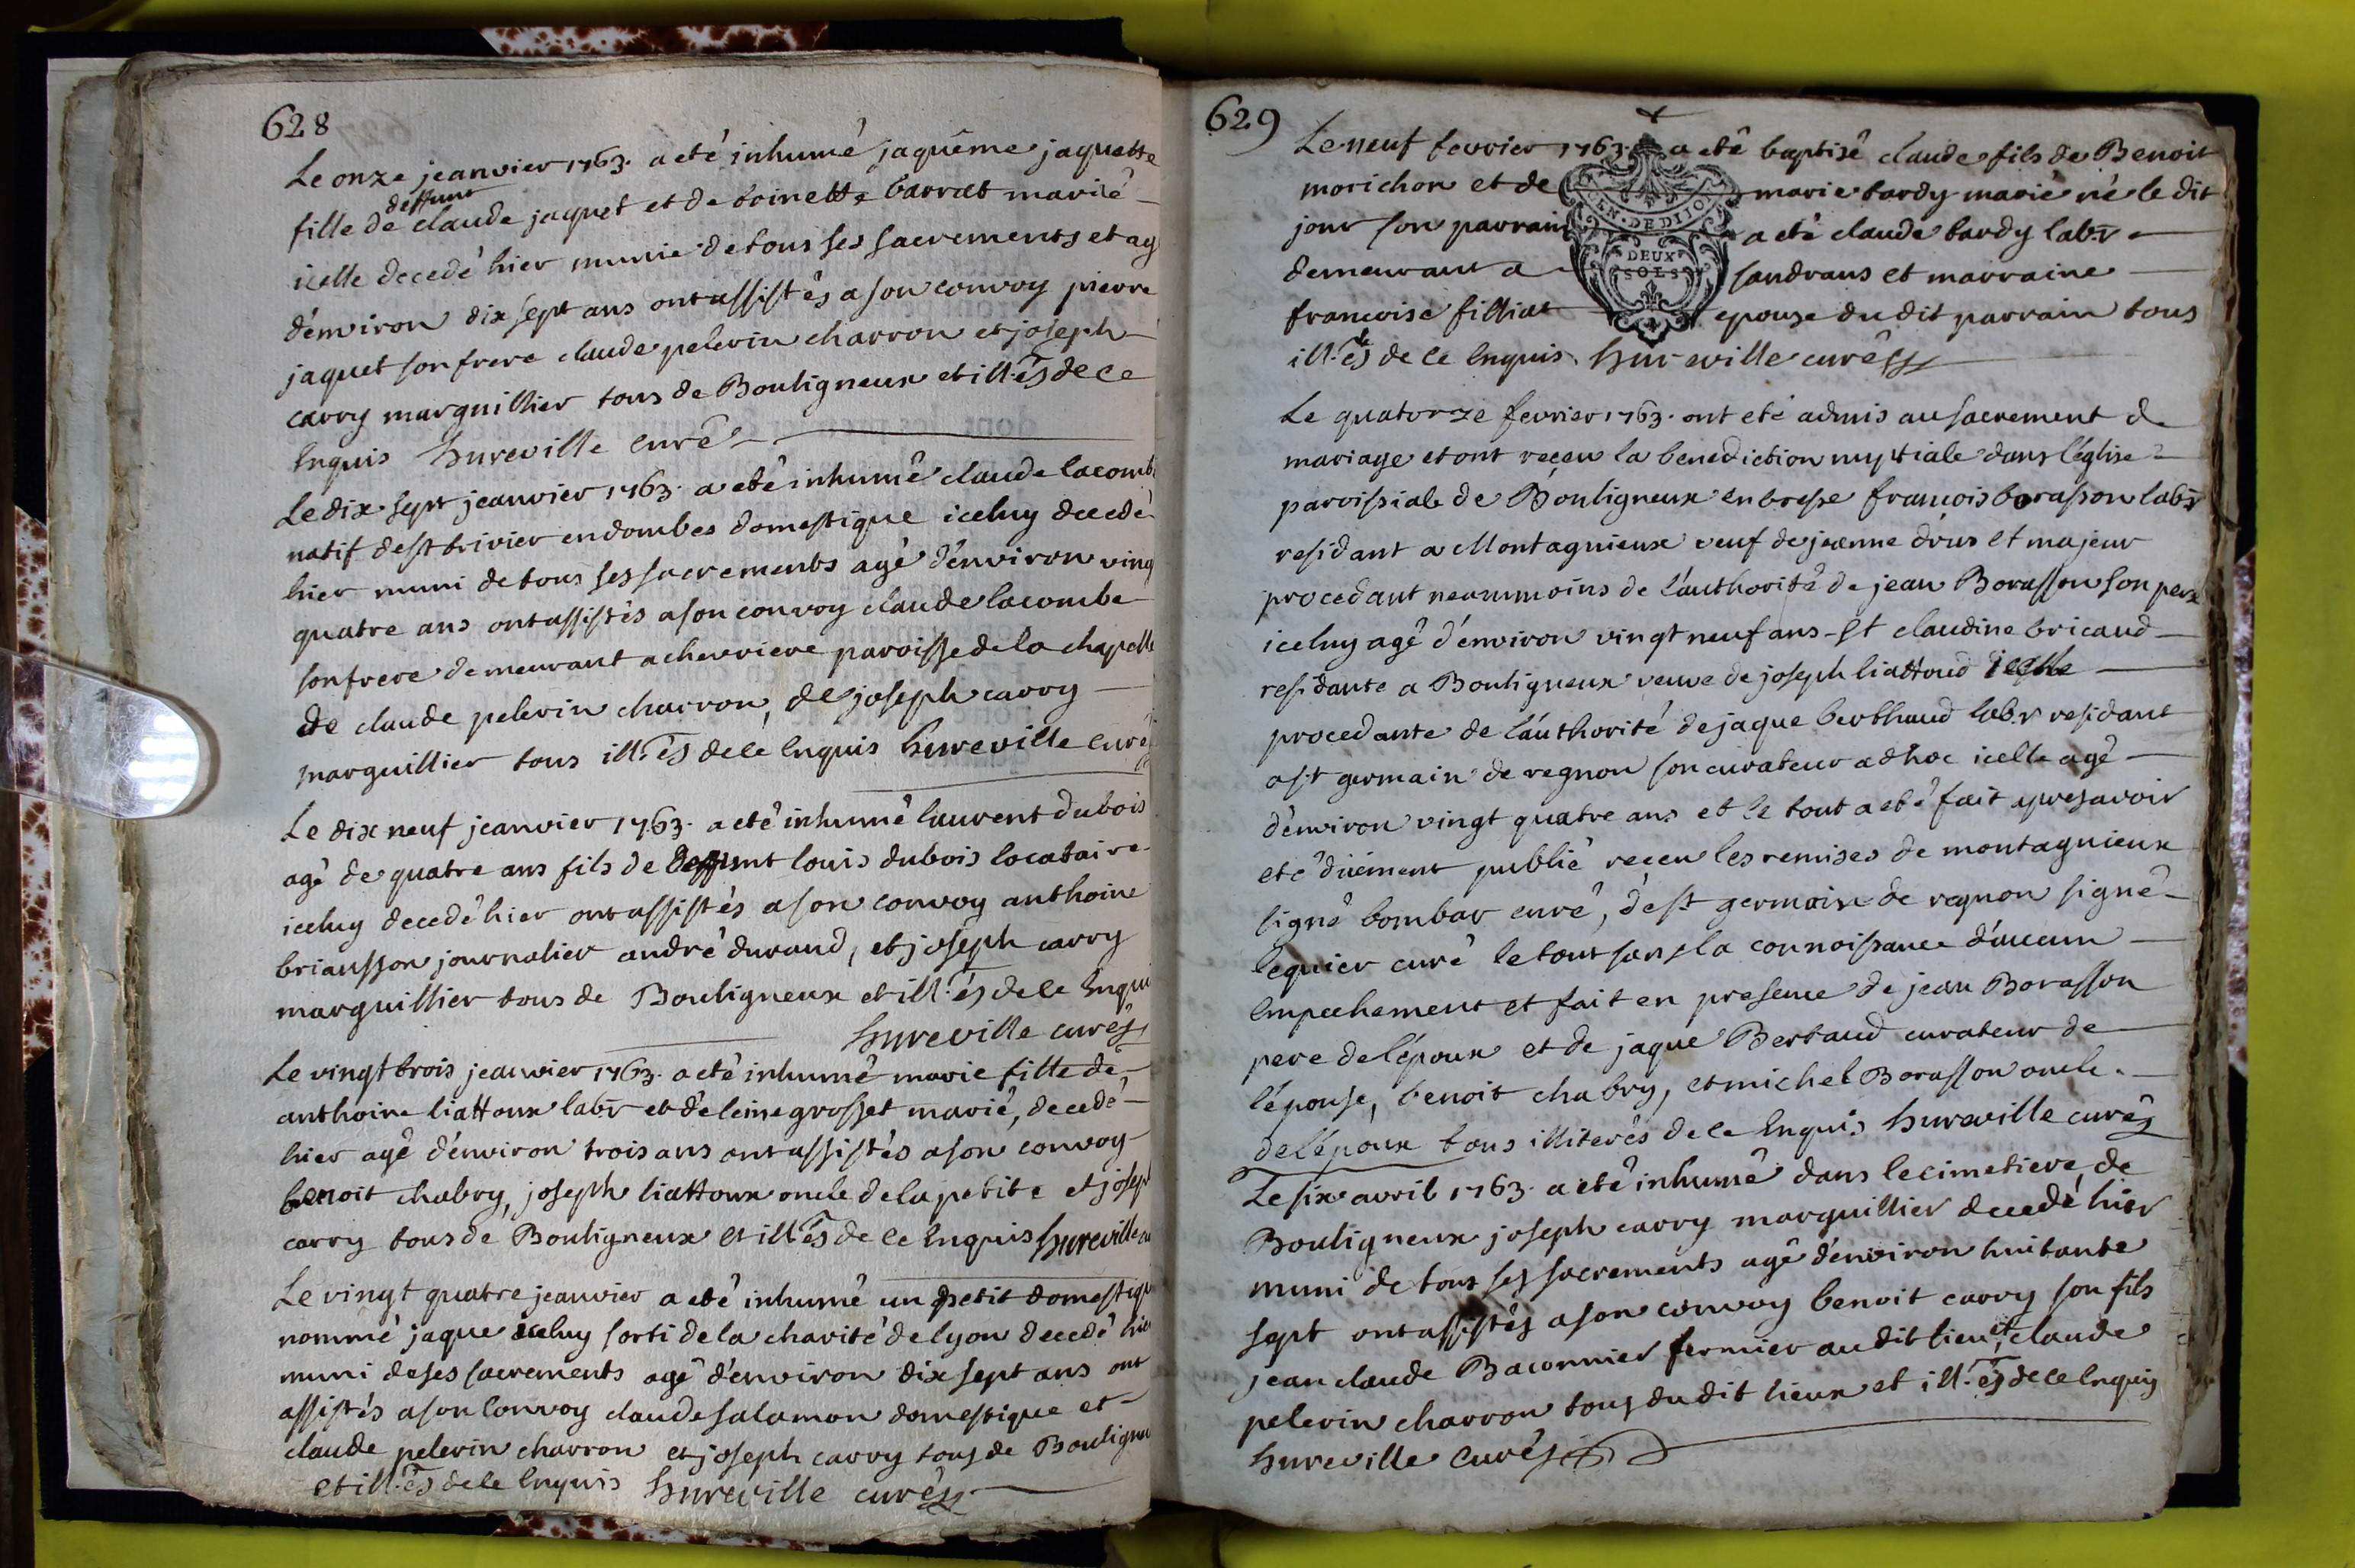 628
Le onze jeanvier 1763. a eté inhumé jaquême jaquette
deffunt
fille de claude jaquet et de toinette barrat marié
icelle decedé hier munie de tous ses sacrements et ag
d'environ dix sept ans ont assistés a son convoy pierre
jaquet son frere claude pelerin charron et joseph
carry marguillier tous de Bouligneux et ill.és de ce
enquis hureville curé
Le dix sept jeanvier 1763. a eté inhumé claude lacomb
natif de st trivier en dombes domestique iceluy decedé
hier muni de tous ses sacrements agé d'environ ving
quatre ans ont assistés a son convoy claude lacombe
son frere demeurant a cherriere paroisse de la chapelle
de claude pelerin charron, de joseph carry
marguillier tous ill.és de ce enquis hureville curé
Le dix neuf jeanvier 1763. a eté inhumé laurent dubois
agé de quatre ans fils de deffunt louis dubois locataire
iceluy decedé hier ont assistés a son convoy anthoine
briansson journalier andré durand, et joseph carry
marguillier tous de Bouligneux et ill.és de ce enqui
hureville curé
Le vingt trois jeanvier 1763. a eté inhumé marie fille de
anthoine liattoux labr et d'eleine grosset marié, decedé
hier agé d'environ trois ans ont assistés a son convoy
benoit chabry, joseph liattoux oncle de la petite et josep
carry tous de Bouligneux et ill.és de ce enquis hureville cu
Le vingt quatre jeanvier a eté inhumé un petit domestiqu
nommé jaque iceluy sorti de la charité de lyon decedé hie
muni de ses sacrements agé d'environ dix sept ans ont
assistés a son convoy claude salamon domestique et
claude pelerin charron et joseph carry tous de Bouligne
et ill.és de ce enquis hureville curé
629
Le neuf fevrier 1763. a eté baptisé claude fils de Benoit
morichon et de marie tardy marié né le dit
jour son parrain a eté claude tardy labr
demeurant a sandrans et marraine
francoise filliat epouse du dit parrain tous
ill.és de ce enquis hureville curé
GEN. DE DIJON
DEUX
SOLS
Le quatorze fevrier 1763. ont eté admis au sacrement de
mariage et ont reçeu la benediction nuptiale dans l'église
paroissiale de Bouligneux en bresse françois borasson labr
residant a Montagnieux veuf de jeanne drus et majeur
procedant neanmmoins de l'authorité de jean Borasson son pere
iceluy agé d'environ vingt neuf ans et claudine bricaud
residante a Bouligneux veuve de joseph liattoud icelle
procedante de l'authorité de jaque berthaud labr residant
a st germain de regnon son curateur ad hoc icelle agé
d'environ vingt quatre ans et le tout a eté fait apres avoir
eté duëment publié reçeu les remises de montagnieux
signé bombar curé, de st germain de regnon signé
lequier curé le tout sans la connoissance d'aucun
empechement et fait en presence de jean Borasson
pere de l'époux et de jaque Bertaud curateur de
l'épouse, benoit chabry, et michel Borasson oncle
de l'époux tous illiterés de ce enquis hureville curé
Le six avril 1763. a eté inhumé dans le cimetiere de
Bouligneux joseph carry marguillier decedé hier
muni de tous ses sacrements agé d'environ huitante
sept ont assistés a son convoy benoit carry son fils
jean claude Baconnier fermier au dit lieu, et claude
pelerin charron tous du dit lieux et ill.és de ce enquis
hureville curé